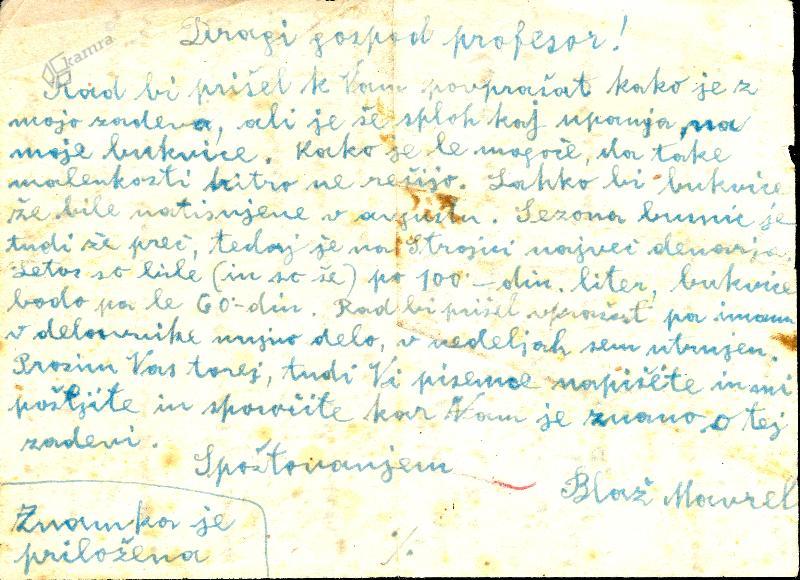 kamra
Dragi gospod profesor!
Rad bi prišel k Vam povprašat kako je z
mojo zadevo, ali je še sploh kaj upanja na
moje bukvice. Kako je le mogoče, da take
malenkosti hitro ne rešijo. Lahko bi bukvice
že bile natisnjene v avgustu. Sezona brusnic je
tudi že preč, tedaj je na Strojni največ denarja.
Letos so bile (in so še) po 100·– din. liter, bukvice
bodo pa le 60·-din. Rad bi prišel vprašat pa imam
v delovnike nujno delo, v nedeljah sem utrujen.
Prosim Vas torej, tudi Vi pisemce napišite in mi
pošljite in sporočite kar Vam je znano o tej
zadevi.
Spoštovanjem
Blaž Mavrel
Znamka je
priložena
·/.